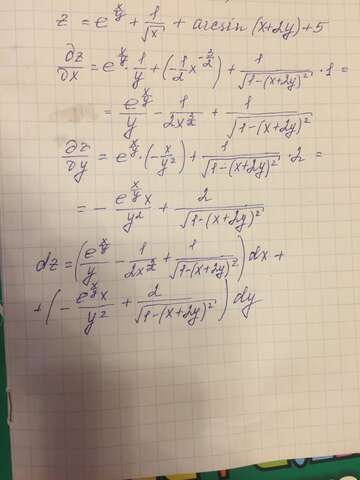 z = e^{x/y} + 1/√x + arcsin(x+2y)+5
∂z/∂x = e^{x/y} · 1/y + (-1/2 x^{-3/2}) + 1/√(1-(x+2y)²) · 1 =
= e^{x/y}/y - 1/(2x^{3/2}) + 1/√(1-(x+2y)²)
∂z/∂y = e^{x/y} · (-x/y²) + 1/√(1-(x+2y)²) · 2 =
= - e^{x/y}x/y² + 2/√(1-(x+2y)²)
dz = (e^{x/y}/y - 1/(2x^{3/2}) + 1/√(1-(x+2y)²)) dx +
+ (- e^{x/y}x/y² + 2/√(1-(x+2y)²)) dy